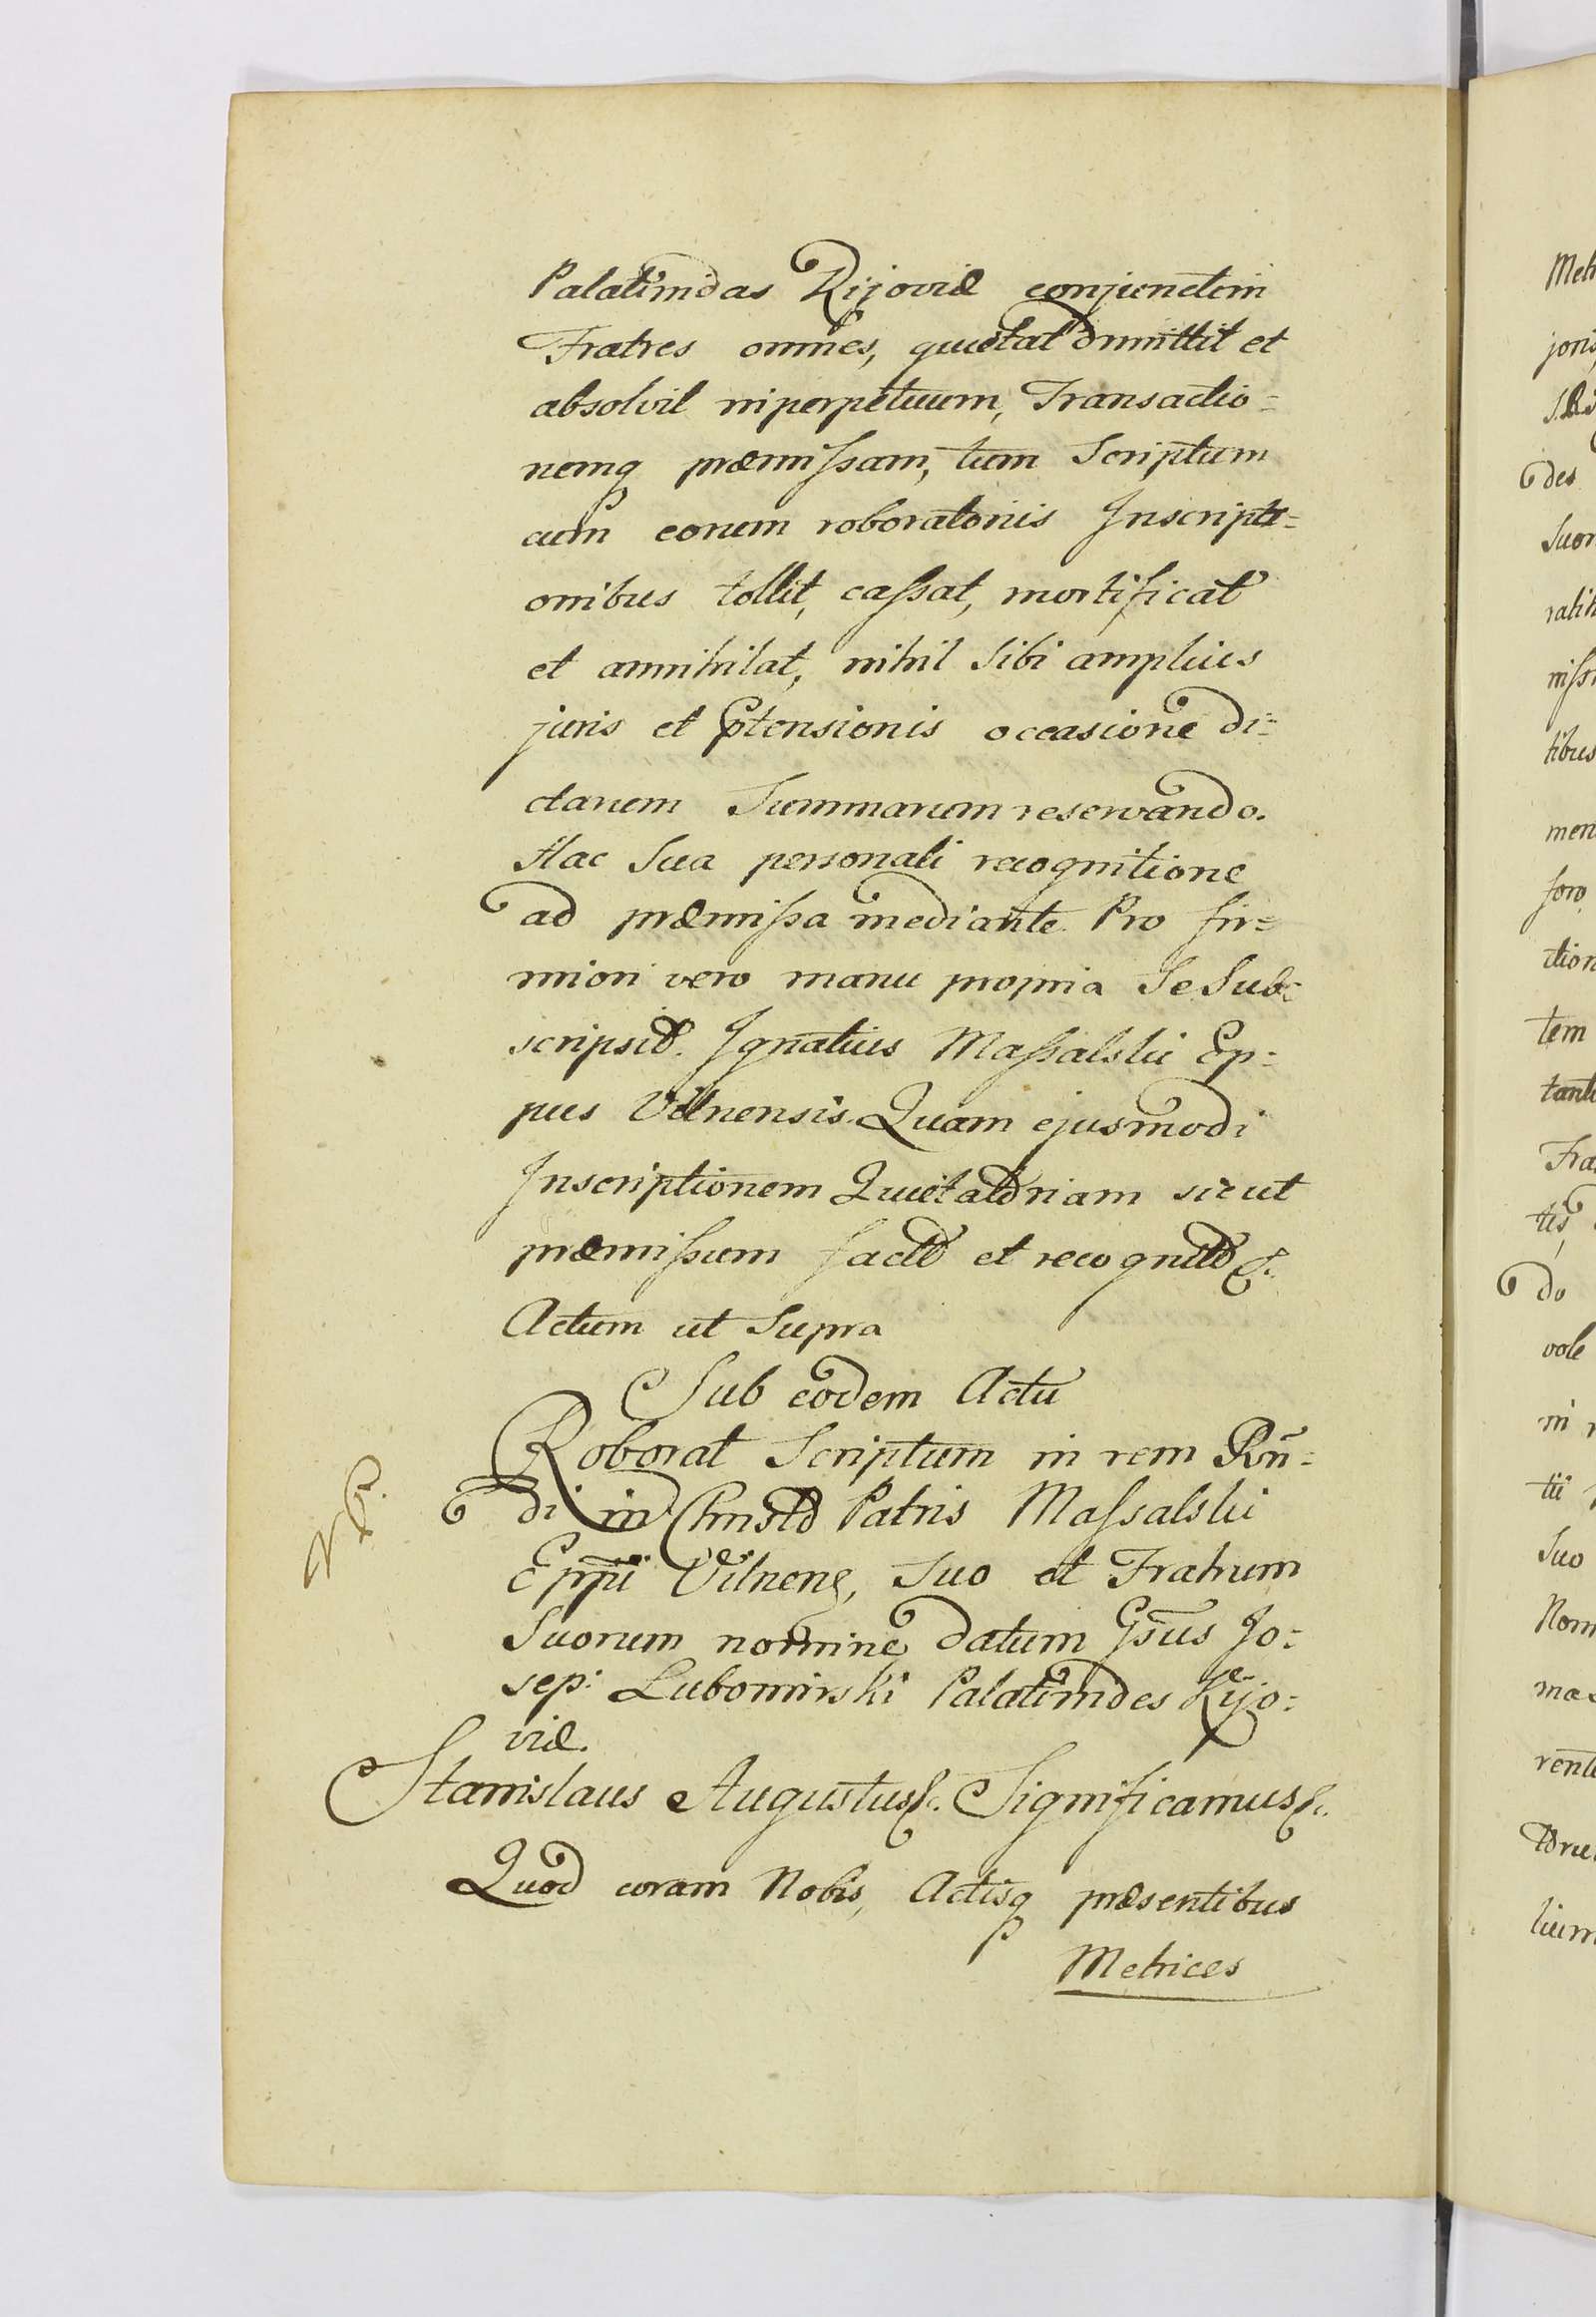 Palatinidas Kijoviæ conjunctim
Fratres omnes, quietat dimittit et
absolvit in perpetuum, Transactio=
nemq præmissam, tum Scriptum
cum eorum roboratoriis Inscripti=
onibus tollit, cassat, mortificat
et annihilat, nihil Sibi amplius
juris et Ptensionis occasione di=
ctarum Summarum reservando.
Hac Sua personali recognitione
ad præmissa mediante. Pro fir=
miori vero manu propria Se Sub=
scripsit. Ignatius Massalski Ep=
pus Vilnensis. Quam ejusmodi
Inscriptionem Quietatoriam sicut
præmissum facto et recognito &.
Actum ut Supra
Sub eodem Actu
Roborat Scriptum in rem Rn̄=
di in Christo Patris Massalski
Eppi Vilnens, Suo et Fratrum
Suorum nomine datum Gsus Jo=
sep: Lubomirski Palatinides Kijo=
viæ.
Stanislaus Augustus &c. Significamus &c.
Quod coram Nobis, Actisq præsentibus
Metrices